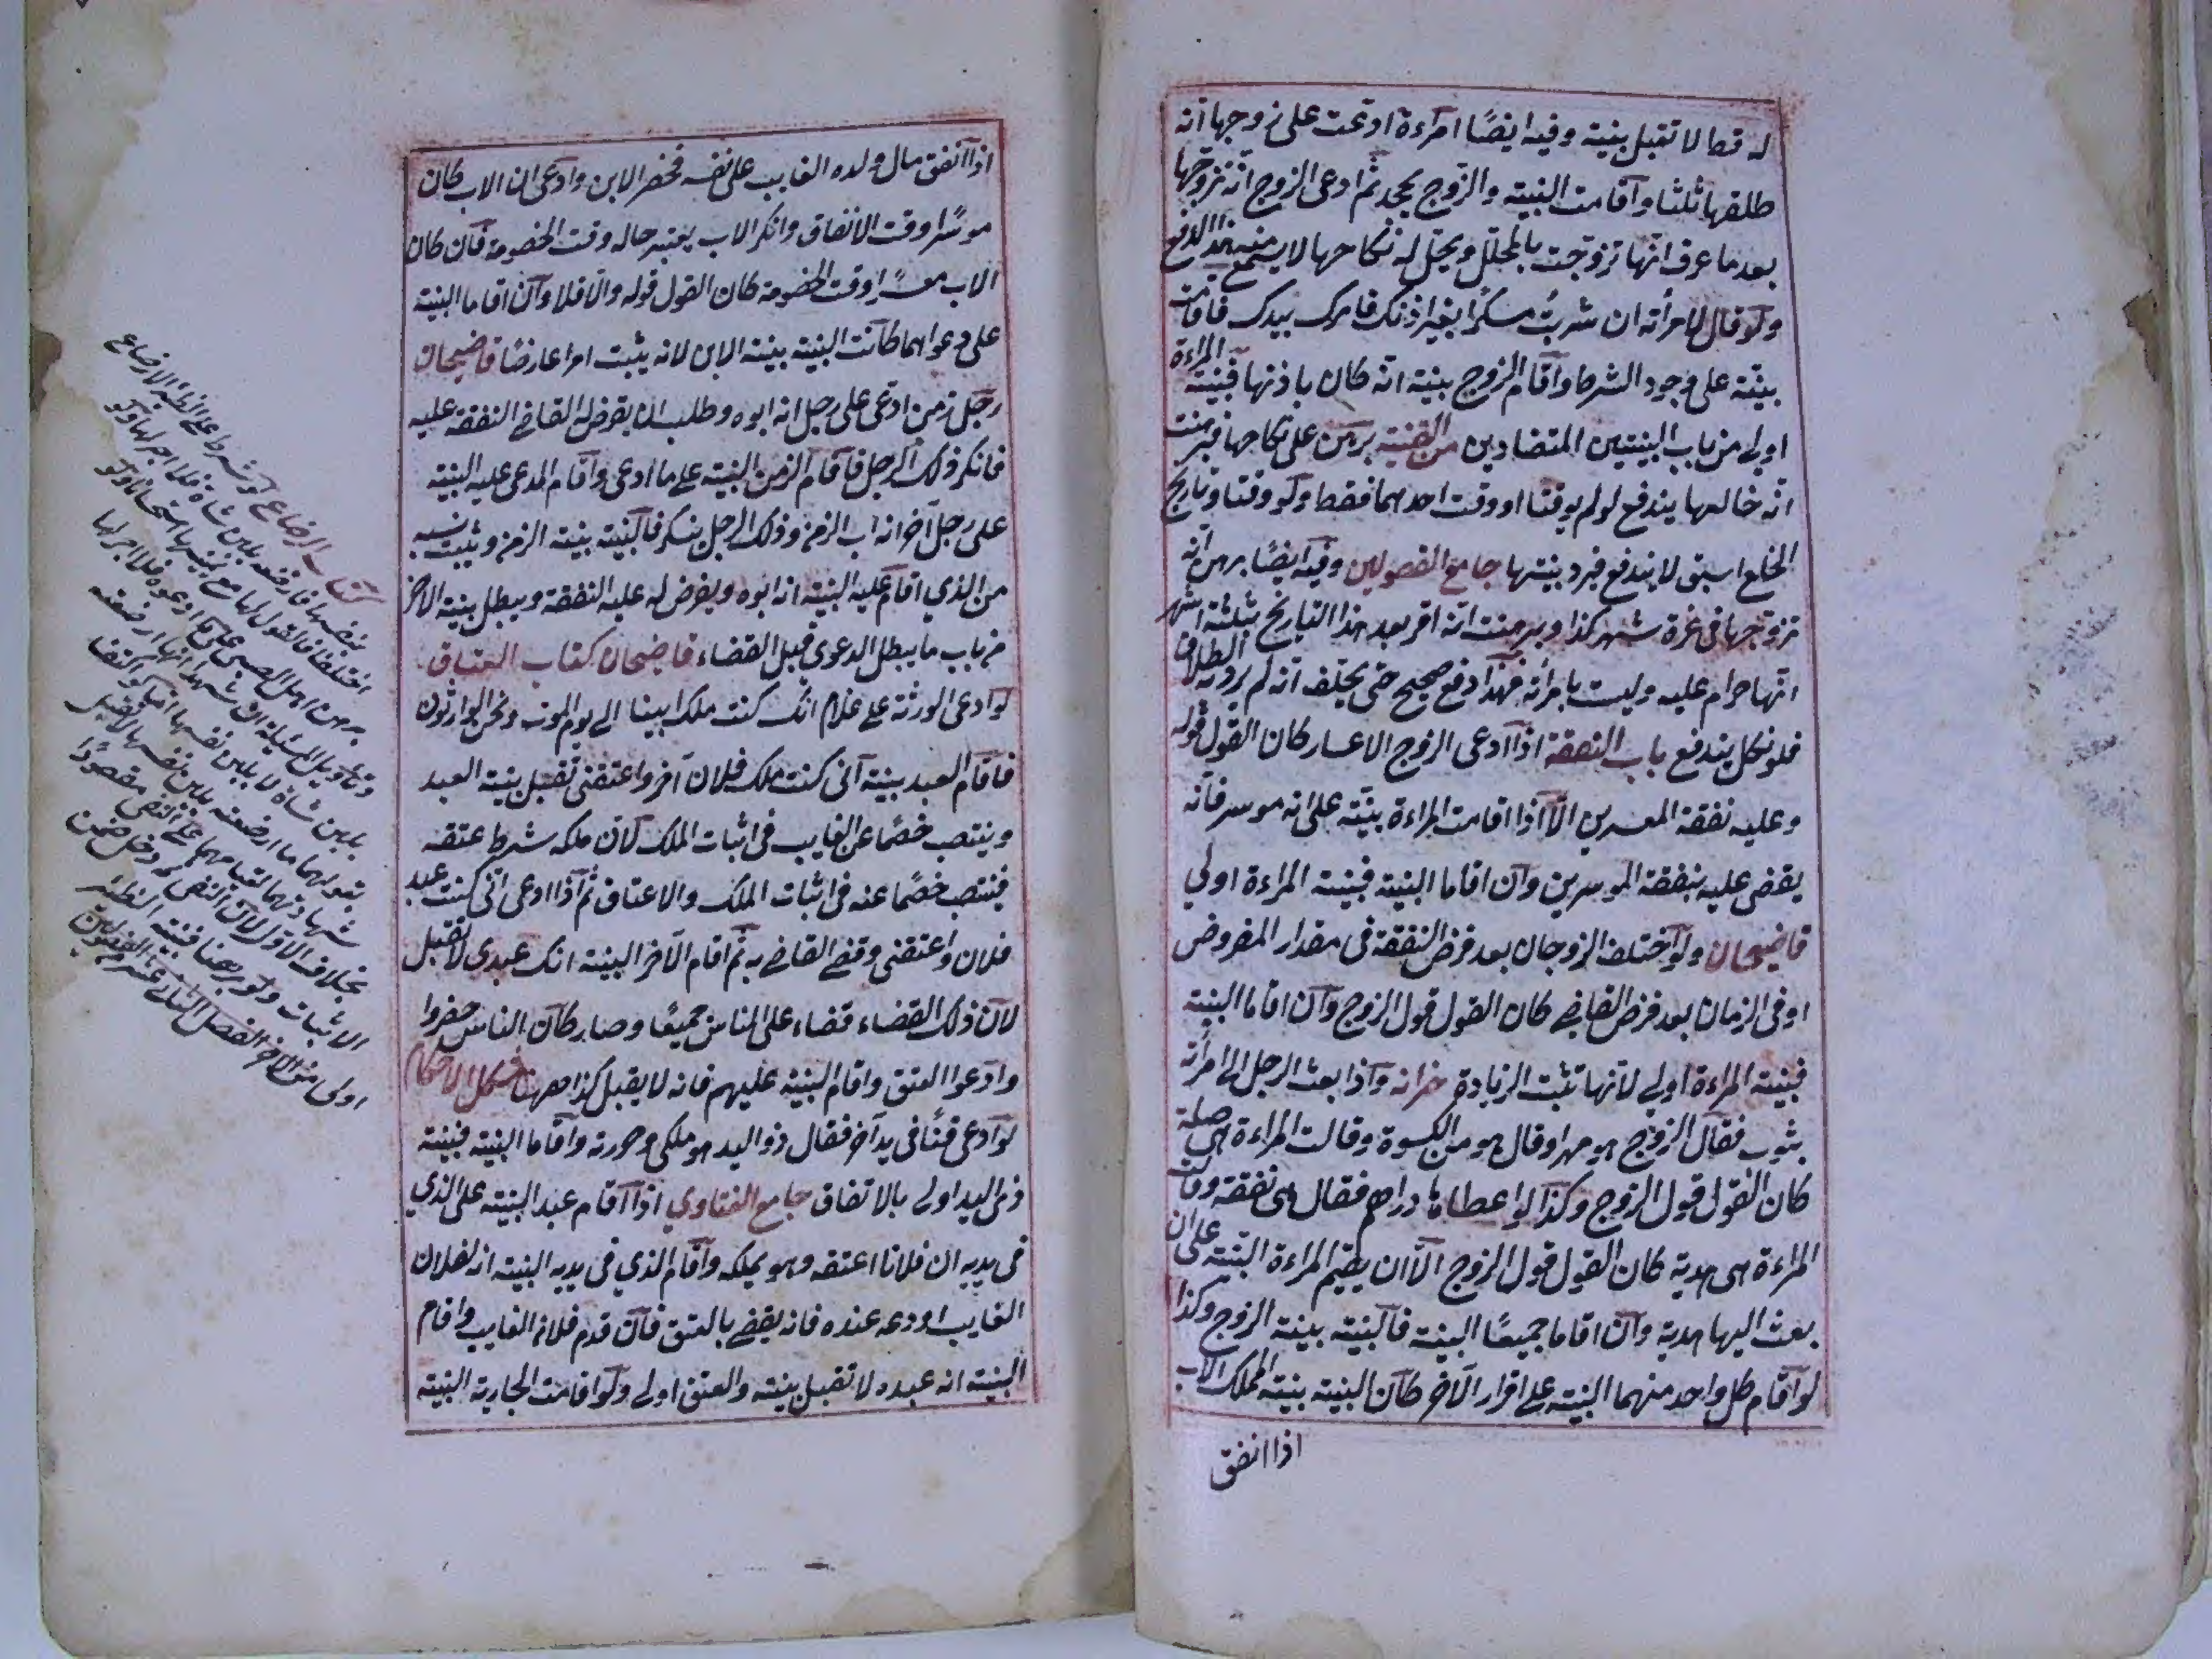 له قط لا تقبل بينته وفيه ايضًا امرءة ادعت على زوجها انه
طلقها ثلثا واقامت البينة والزوج يجحد ثم ادعى الزوج انه تزوجها
بعد ما عرف انها تزوجت بالمحلل ويحل له نكاحها لا يسمع منه هذا الدفع
ولو قال لامرأته ان شربت مسكرًا بغير اذنك فامرك بيدك فاقامت المراءة
بينة على وجود الشرط واقام الزوج بينة انه كان باذنها فبينته
اولى من باب البينتين المتضادين من القنية برهن على نكاحها فبرهنت
انه خالعها يندفع لو لم يوقتا او وقت احدهما فقط ولو وقتا وتاريخ
الخلع اسبق لا يندفع فيرد بينتها جامع الفصولين وفيه ايضًا برهن انه
تزوجها في غرة شهر كذا وبرهنت انه اقر بعد هذا التاريخ بثلثة اشهر
انها حرام عليه وليست بامرأته فهذا دفع صحيح حتى يحلف انه لم يرد به الطلاق
فلو نكل يندفع باب النفقة اذا ادعى الزوج الاعسار كان القول قوله
وعليه نفقة المعسرين الا اذا اقامت المراءة بينة على انه موسر فانه
يقضى عليه بنفقة الموسرين وان اقاما البينة فبينة المراءة اولى
قاضيخان ولو اختلف الزوجان بعد فرض النفقة في مقدار المفروض
او في الزمان بعد فرض القاضي كان القول قول الزوج وان اقاما البينة
فبينة المراءة اولى لانها تثبت الزيادة خزانه واذا بعث الرجل الى امرأته
بثوب فقال الزوج هو مهر او قال هو من الكسوة وقالت المراءة هي صلة
كان القول قول الزوج وكذا لو اعطاها دراهم فقال هي نفقة وقالت
المراءة هي هدية كان القول قول الزوج الا ان يقيم المراءة البينة على ان
بعث اليها هدية وان اقاما جميعًا البينة فالبينة بينة الزوج وكذا
لو اقام كل واحد منهما البينة على اقرار الاخر كان البينة بينة المملك الاب
اذا انفق
اذا انفق مال ولده الغايب على نفسه فحضر الابن وادعى ان الاب كان
موسرًا وقت الانفاق وانكر الاب يعتبر حاله وقت الخصومة فان كان
الاب معسرًا وقت الخصومة كان القول قوله والا فلا وان اقاما البينة
على دعواهما كانت البينة بينة الابن لانه يثبت امرا عارضًا قاضيخان
رجل زمن ادعى على رجل انه ابوه وطلب ان يفرض له القاضي النفقة عليه
فانكر ذلك الرجل فاقام الزمن البينة على ما ادعى واقام المدعى عليه البينة
على رجل آخر انه اب الزمن وذلك الرجل ينكر فالبينة بينة الزمن ويثبت نسبه
من الذي اقام عليه البينة انه ابوه ويفرض له عليه النفقة ويبطل بينة الاخر
من باب ما يبطل الدعوى قبل القضاء قاضيخان كتاب العتاق
لو ادعى الورثة على غلام انك كنت ملك ابينا الى يوم الموت ونحن الوارثون
فاقام العبد بينة اني كنت ملك فلان آخر واعتقني تقبل بينة العبد
وينتصب خصمًا عن الغايب في اثبات الملك لان ملكه شرط عتقه
فينتصب خصمًا عنه في اثبات الملك والاعتاق ثم اذا ادعى اني كنت عبد
فلان واعتقني وقضى القاضي به ثم اقام الاخر البينة انك عبدي لا تقبل
لان ذلك القضاء قضاء على الناس جميعًا وصار كان الناس حضروا
وادعوا العتق واقام البينة عليهم فانه لا يقبل كذا ههنا مشكل الاحكام
لو ادعى قنًا في يد آخر فقال ذو اليد هو ملكي وحررته واقاما البينة فبينة
ذي اليد اولى بالاتفاق جامع الفتاوى اذا اقام عبد البينة على الذي
في يديه ان فلانا اعتقه وهو يملكه واقام الذي في يديه البينة انه لفلان
الغايب اودعه عنده فانه يقضى بالعتق فان قدم فلان الغايب واقام
البينة انه عبده لا تقبل بينته والعتق اولى ولو اقامت الجارية البينة
كتاب الرضاع لو شرط على الظئر الارضاع
بنفسها فارضعته بلبن شاة فلا اجر لها ولو
اختلفا فالقول لها مع يمينها استحسانا ولو
برهن اهل الصبي على ما ادعوه فلا اجر لها
وتاويل المسئلة ان شهدا انها ارضعته
بلبن شاة لا بلبن نفسها اما لو اكتفا
بقولهما ما ارضعته بلبن نفسها لا تقبل
شهادتهما لقيامهما على النفي مقصودًا
بخلاف الاول لان النفي ثمة دخل ضمن
الاثبات ولو برهنا فبينة الظئر
اولى